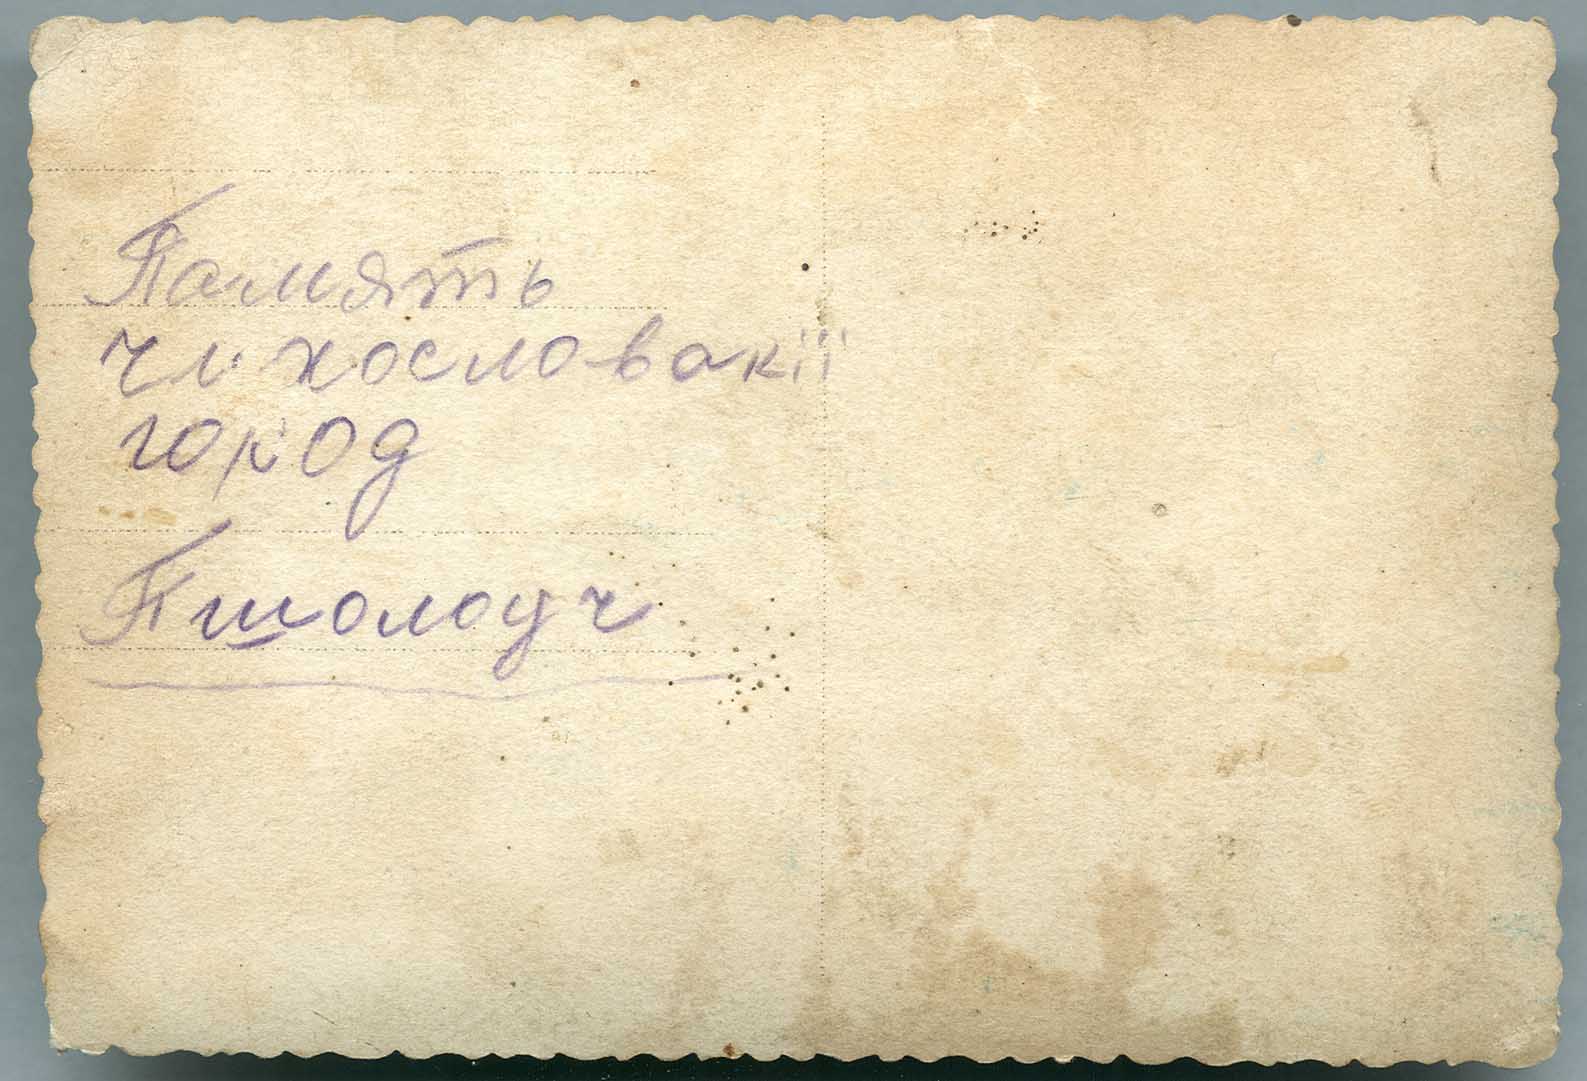 Память
чихословакії
город
Пшолоуч